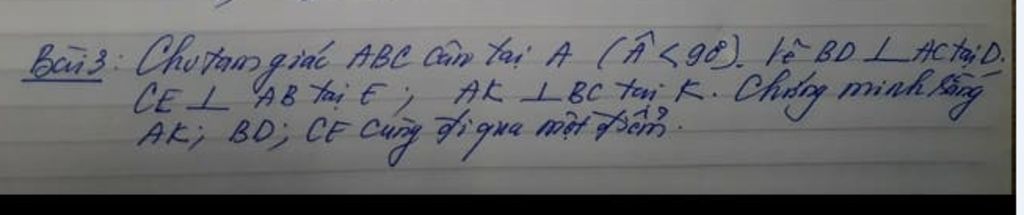 Bài 3: Cho tam giác ABC cân tại A (Â < 90°). Vẽ BD ⊥ AC tại D.
CE ⊥ AB tại E ; AK ⊥ BC tại K. Chứng minh rằng
AK; BD; CE cùng đi qua một điểm.